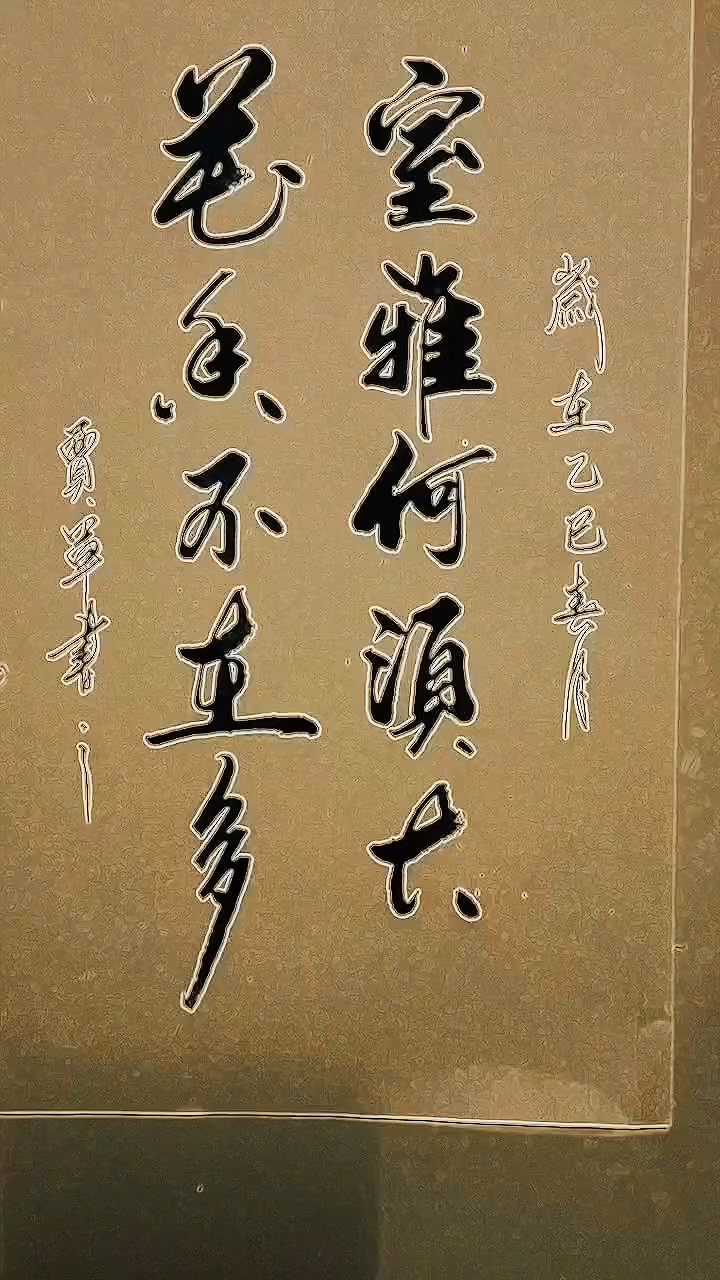 歲在乙巳春月
室雅何須大
花香不在多
賈草書